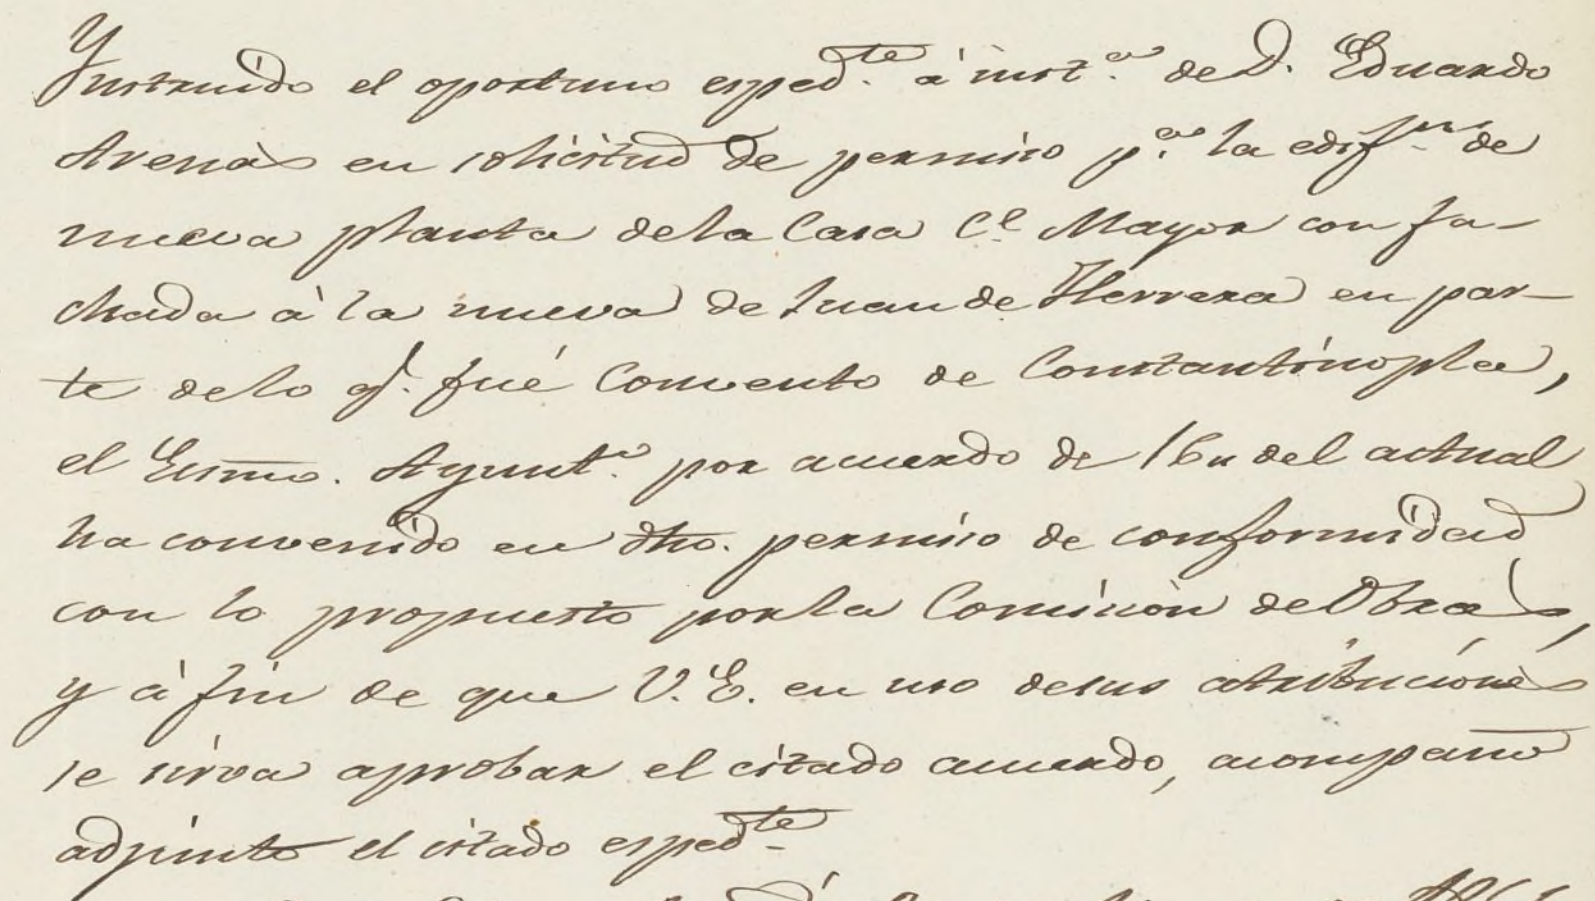 Ynstruido el oportuno esped.te á inst.a de D. Eduardo
Arenas en solicitud de permiso p.a la edif.on de
nueva planta de la Casa C.e Mayor con fa-
chada à la nueva de Juan de Herrera en par-
te de lo q.e fué Convento de Constantinopla,
el Excmo. Ayunt.o por acuerdo de 16 del actual
ha convenido en dho. permiso de conformidad
con lo propuesto por la Comisiòn de Obras,
y á fin de que V.E. en uso de sus atribuciones
se sirva aprobar el citado acuerdo, acompaño
adjunto el citado esped.te